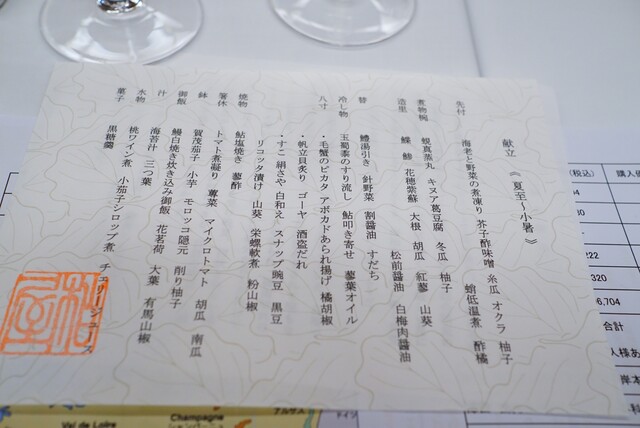 献立 《夏至～小暑》
先付 海老と野菜の煮凍り 芥子酢味噌 糸瓜 オクラ 柚子
蛸低温煮 酢橘
煮物椀 蜆真蒸丸 キヌア葛豆腐 冬瓜 柚子
造里 鰈 鯵 花穂紫蘇 大根 胡瓜 紅蓼 山葵
松前醤油 白梅肉醤油
替 鱧湯引き 針野菜 割醤油 すだち
冷し物 玉蜀黍のすり流し 鮎叩き寄せ 蓼葉オイル
八寸 ・毛蟹のピカタ アボカドあられ揚げ 橘胡椒
・帆立貝炙り ゴーヤ 酒盗だれ
・すこ絹さや白和え スナップ豌豆 黒豆
リコッタ漬け 山葵 栄螺軟煮 粉山椒
焼物 鮎塩焼き 蓼酢
箸休 トマト煮凝り 蓴菜 マイクロトマト 胡瓜 南瓜
鉢 賀茂茄子 小芋 モロッコ隠元 削り柚子
御飯 鰻白焼き炊き込み御飯 花茗荷 大葉 有馬山椒
汁 海苔汁 三つ葉
水物 桃ワイン煮 小茄子シロップ煮 チェリージュース
菓子 黒糖羹
(税込)
購人価
222
320
6,704
合計
人様あ
岸本
科
Val de Loire
Champagne
シャンパーニュ
アルザス
ドイツ